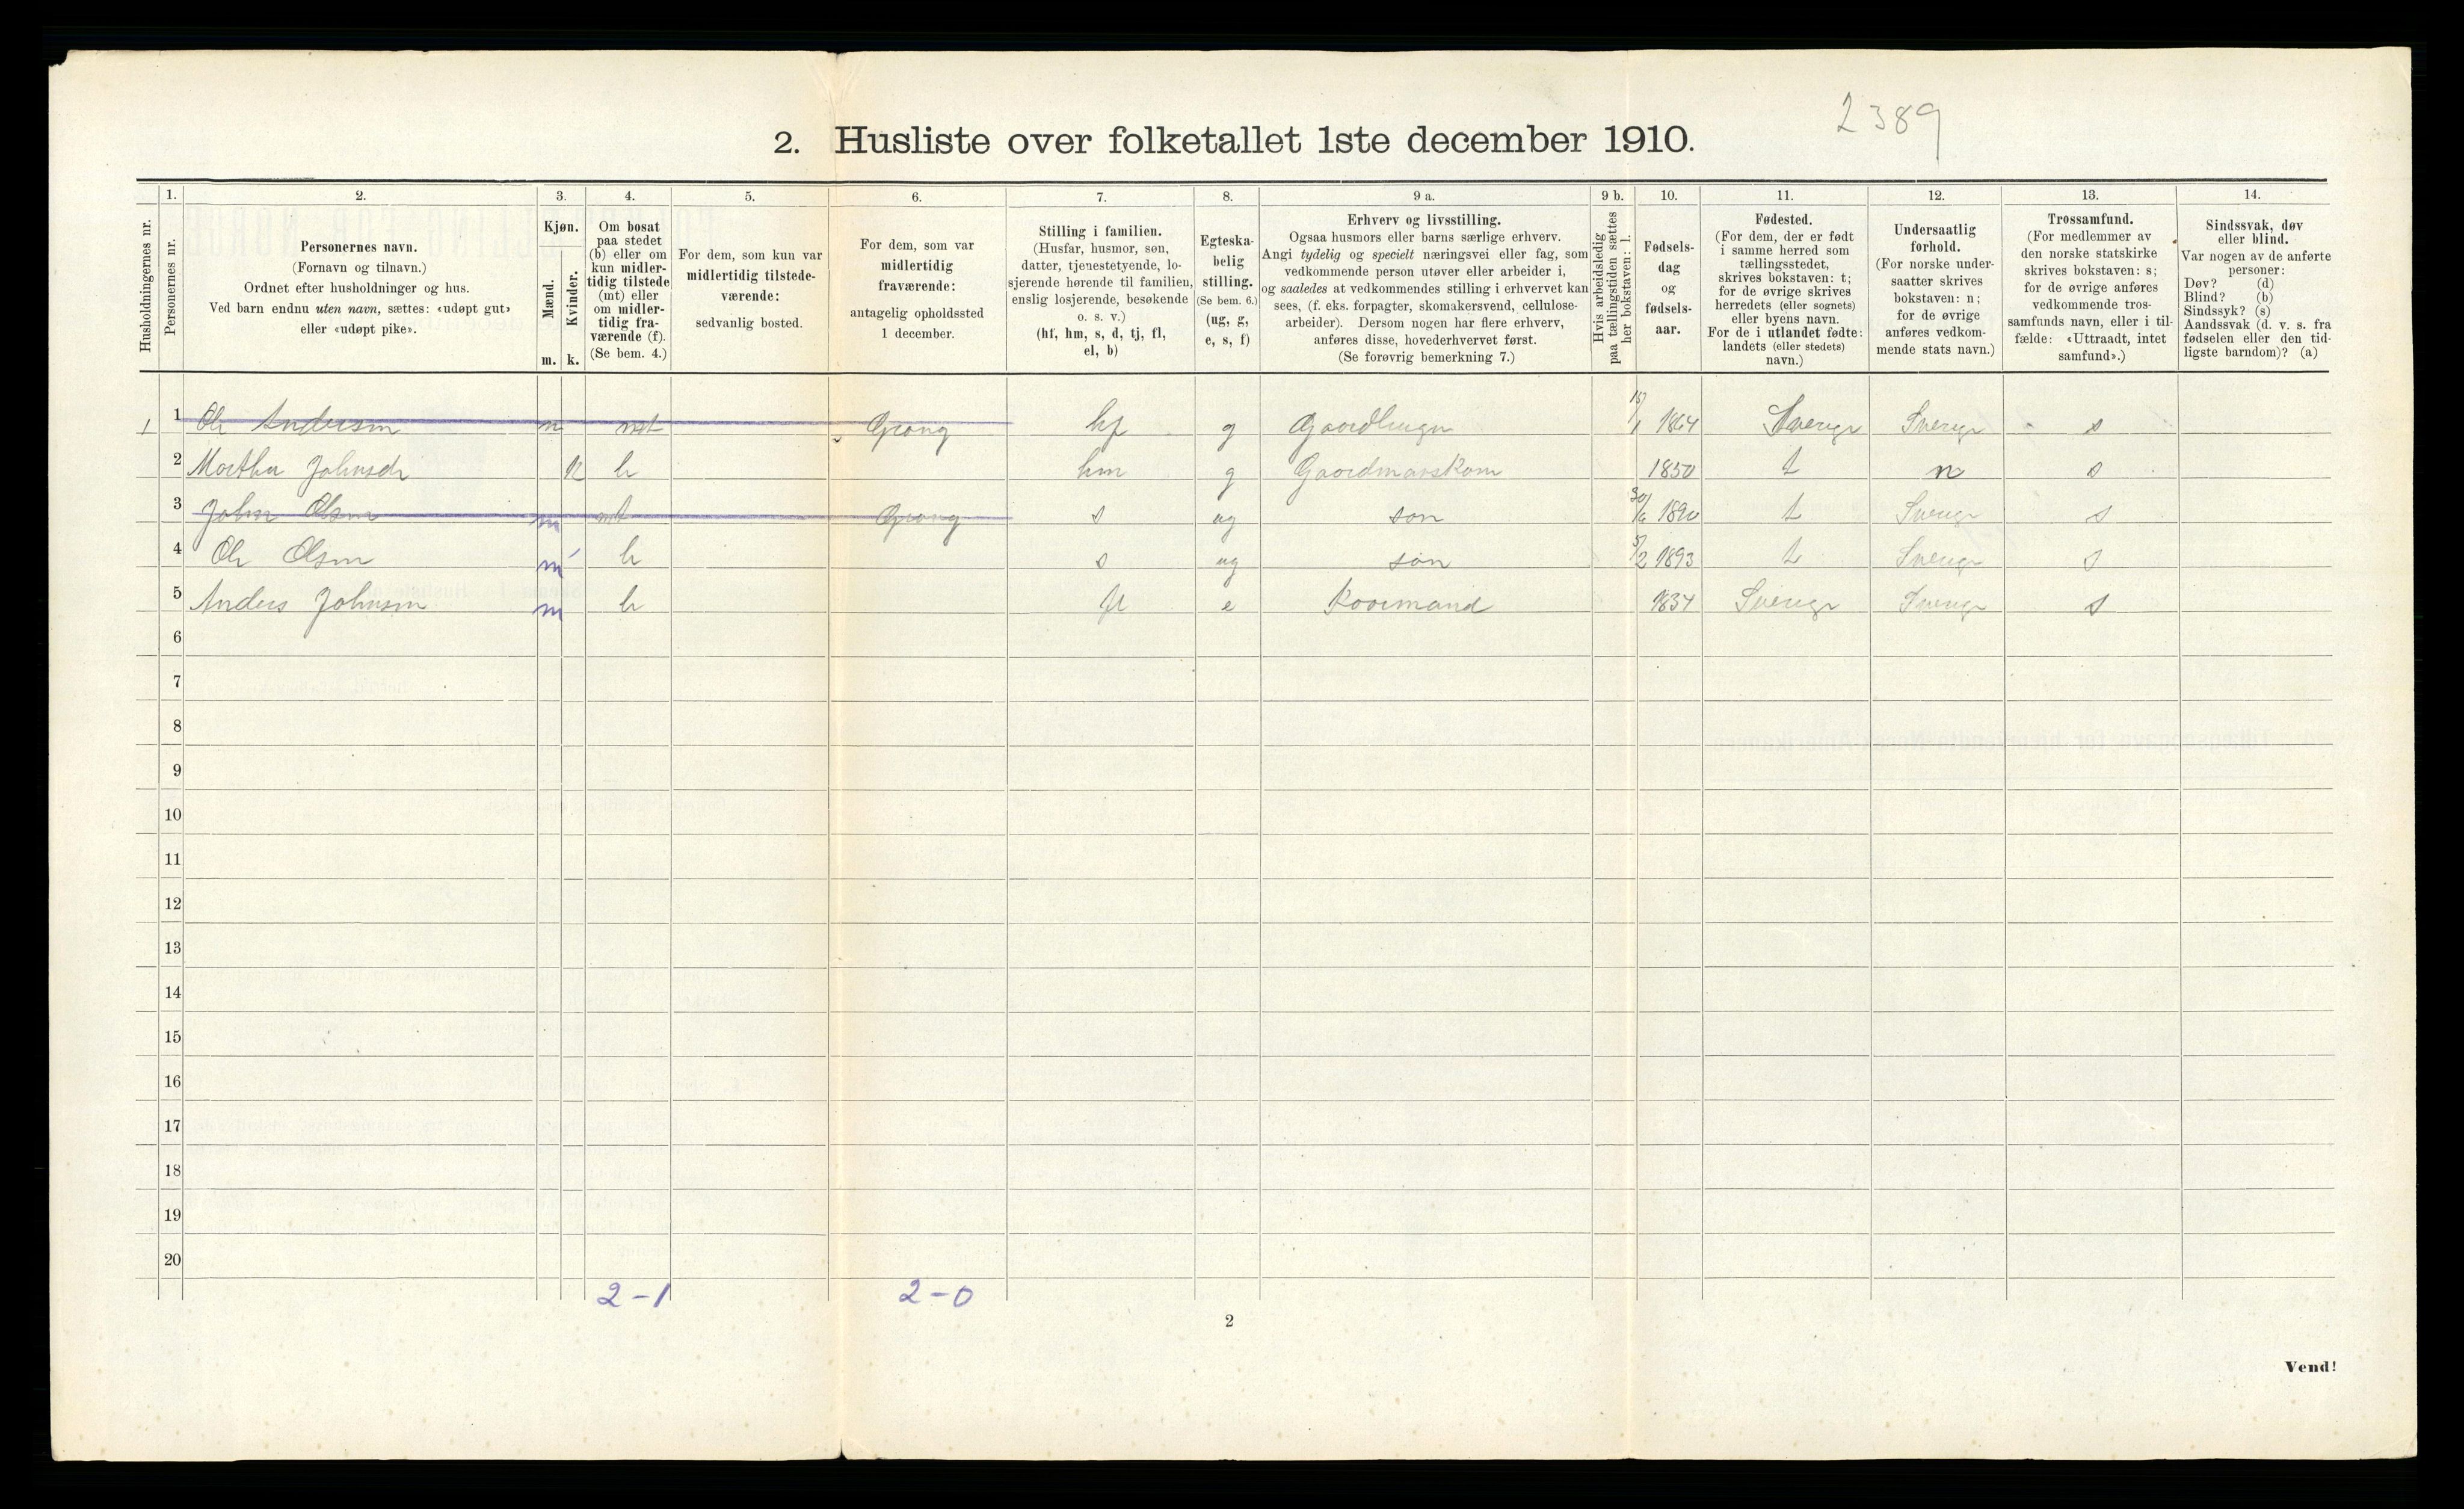 2389
2. Husliste over folketallet 1ste december 1910.
Husholdningernes nr.
1.
Personernes nr.
2.
Personernes navn.
(Fornavn og tilnavn.)
Ordnet efter husholdninger og hus.
Ved barn endnu uten navn, sættes: «udøpt gut»
eller «udøpt pike».
3.
Kjøn.
Mænd.
Kvinder.
m. k.
4.
Om bosat
paa stedet
(b) eller om
kun midler-
tidig tilstede
(mt) eller
om midler-
tidig fra-
værende (f).
(Se bem. 4.)
5.
For dem, som kun var
midlertidig tilstede-
værende:
sedvanlig bosted.
6.
For dem, som var
midlertidig
fraværende:
antagelig opholdssted
1 december.
7.
Stilling i familien.
(Husfar, husmor, søn,
datter, tjenestetyende, lo-
sjerende hørende til familien,
enslig losjerende, besøkende
o. s. v.)
(hf, hm, s, d, tj, fl,
el, b)
8.
Egteska-
belig
stilling.
(Se bem. 6.)
(ug, g,
e, s, f)
9 a.
Erhverv og livsstilling.
Ogsaa husmors eller barns særlige erhverv.
Angi tydelig og specielt næringsvei eller fag, som
vedkommende person utøver eller arbeider i,
og saaledes at vedkommendes stilling i erhvervet kan
sees, (f. eks. forpagter, skomakersvend, cellulose-
arbeider). Dersom nogen har flere erhverv,
anføres disse, hovederhvervet først.
(Se forøvrig bemerkning 7.)
9 b.
Hvis arbeidsledig
paa tællingstiden sættes
her bokstaven: l.
10.
Fødsels-
dag
og
fødsels-
aar.
11.
Fødested.
(For dem, der er født
i samme herred som
tællingsstedet,
skrives bokstaven: t;
for de øvrige skrives
herredets (eller sognets)
eller byens navn.
For de i utlandet fødte:
landets (eller stedets)
navn.)
12.
Undersaatlig
forhold.
(For norske under-
saatter skrives
bokstaven: n;
for de øvrige
anføres vedkom-
mende stats navn.)
13.
Trossamfund.
(For medlemmer av
den norske statskirke
skrives bokstaven: s;
for de øvrige anføres
vedkommende tros-
samfunds navn, eller i til-
fælde: «Uttraadt, intet
samfund».)
14.
Sindssvak, døv
eller blind.
Var nogen av de anførte
personer:
Døv? (d)
Blind? (b)
Sindssyk? (s)
Aandssvak (d. v. s. fra
fødselen eller den tid-
ligste barndom)? (a)
1 1 Ole Andersen m mt Grong hf g 15/1 1864 Sverige Sverige s
2 Johnsdr k b hm g 1850 t n s
3 John Olsen m mt Grong s ug søn 30/6 1890 t Sverige s
4 Ole Olsen m b s ug søn 5/2 1893 t Sverige s
5 Anders Johnsen m b fl e Kaarmand 1834 Sverige Sverige s
6
7
8
9
10
11
12
13
14
15
16
17
18
19
20
2-1 2-0
2
Vend!